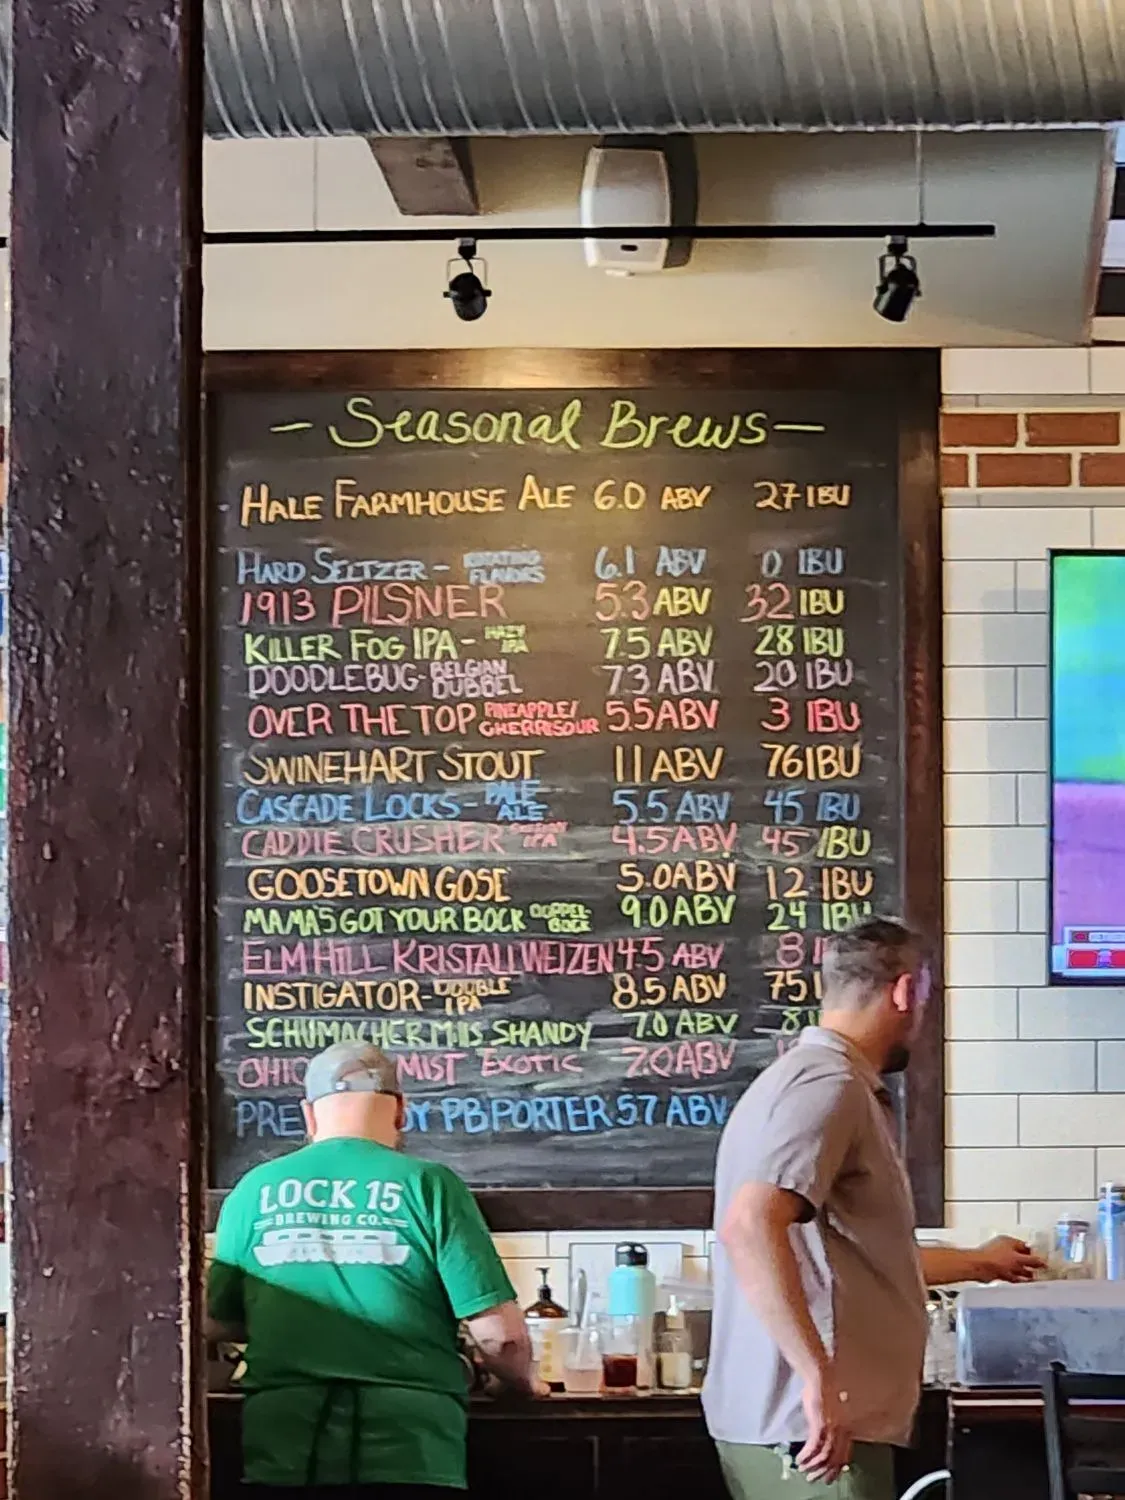 — Seasonal Brews —
HALE FARMHOUSE ALE 6.0 ABV 27 IBU
HARD SELTZER - ROTATING FLAVORS 6.1 ABV 0 IBU
1913 PILSNER 5.3 ABV 32 IBU
KILLER FOG IPA - HAZY IPA 7.5 ABV 28 IBU
DOODLEBUG - BELGIAN DUBBEL 7.3 ABV 20 IBU
OVER THE TOP PINEAPPLE/ CHERRISOUR 5.5 ABV 3 IBU
SWINEHART STOUT 11 ABV 76 IBU
CASCADE LOCKS - PALE ALE 5.5 ABV 45 IBU
CADDIE CRUSHER IPA 4.5 ABV 45 IBU
GOOSETOWN GOSE 5.0 ABV 12 IBU
MAMA'S GOT YOUR BOCK DOPPEL BOCK 9.0 ABV 24 IBU
ELM HILL KRISTALLWEIZEN 4.5 ABV 8 I
INSTIGATOR - DOUBLE IPA 8.5 ABV 75 I
SCHUMACHER MILLS SHANDY 7.0 ABV 8
OHIO MIST EXOTIC 7.0 ABV
PRE DY PB PORTER 57 ABV
LOCK 15
BREWING CO.